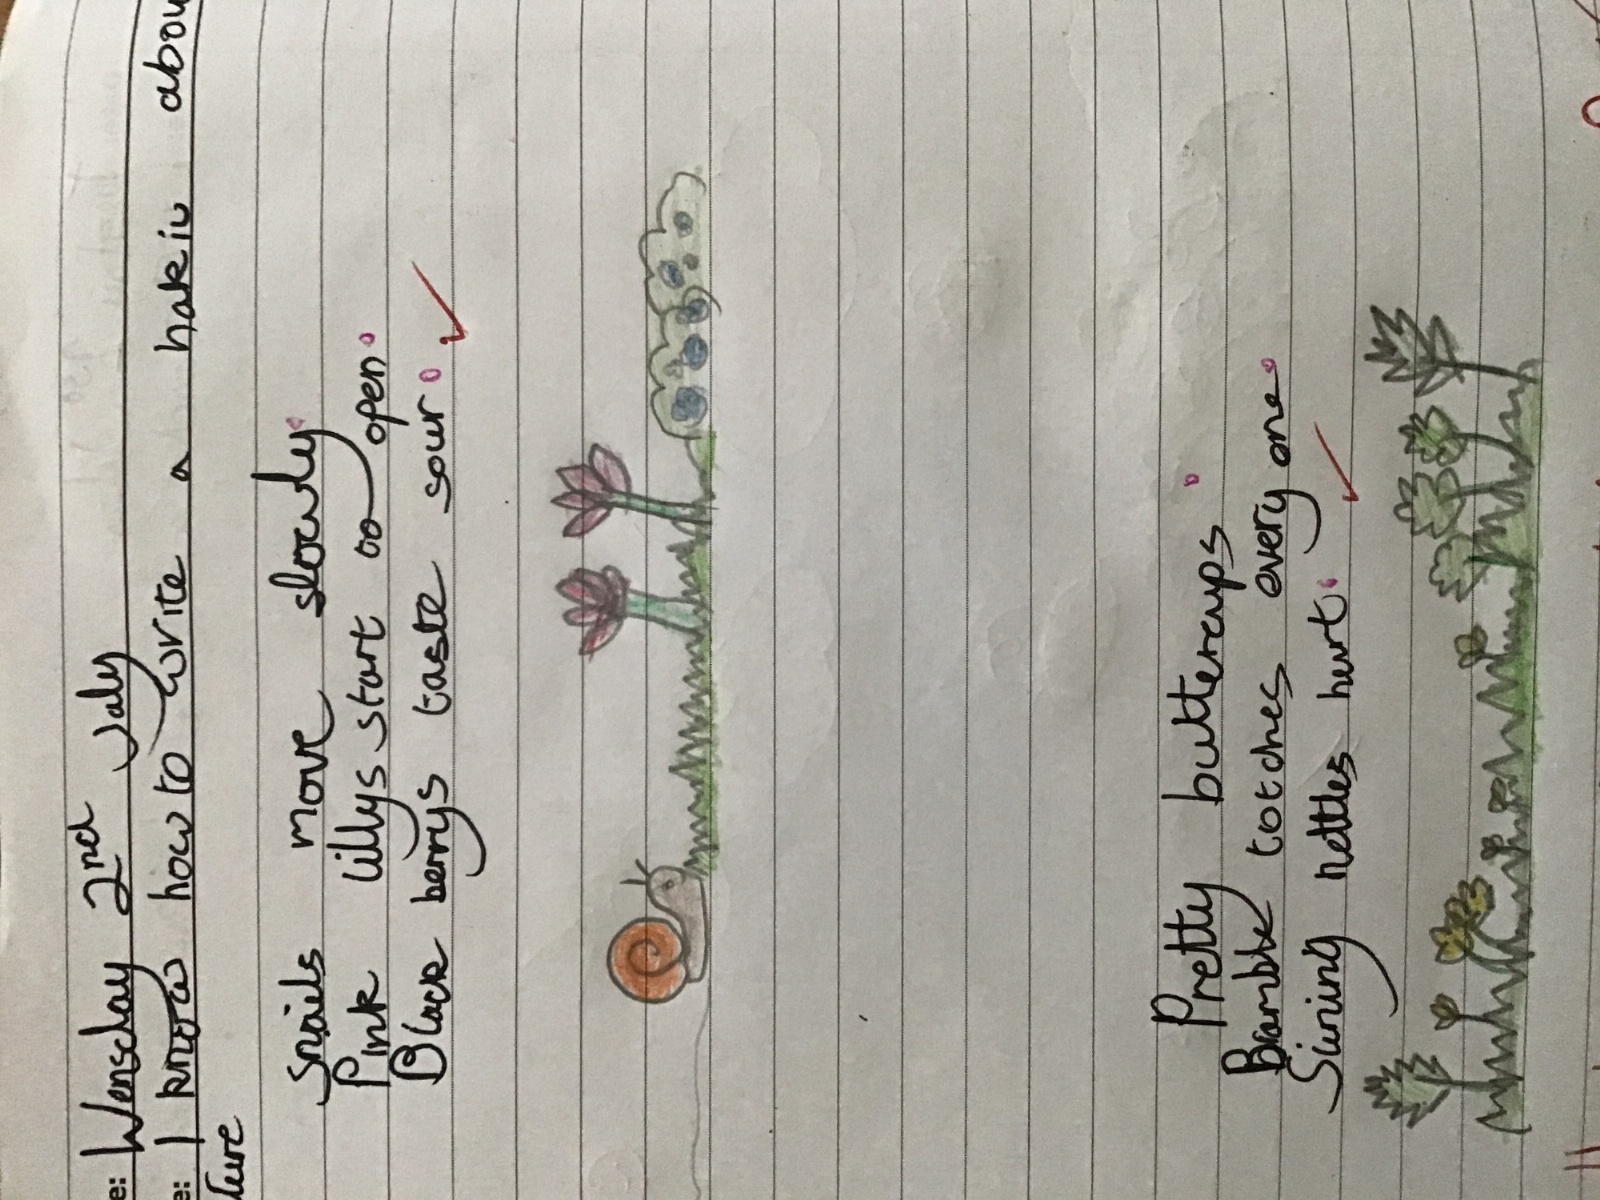 e: Wensday 2nd July
e: I know how to write a hakiu abou
ture
Snails move slowly.
Pink lillys start to open.
Black berrys taste sour.
Pretty buttercups.
Bramble totches every one.
Sining nettles hurt.